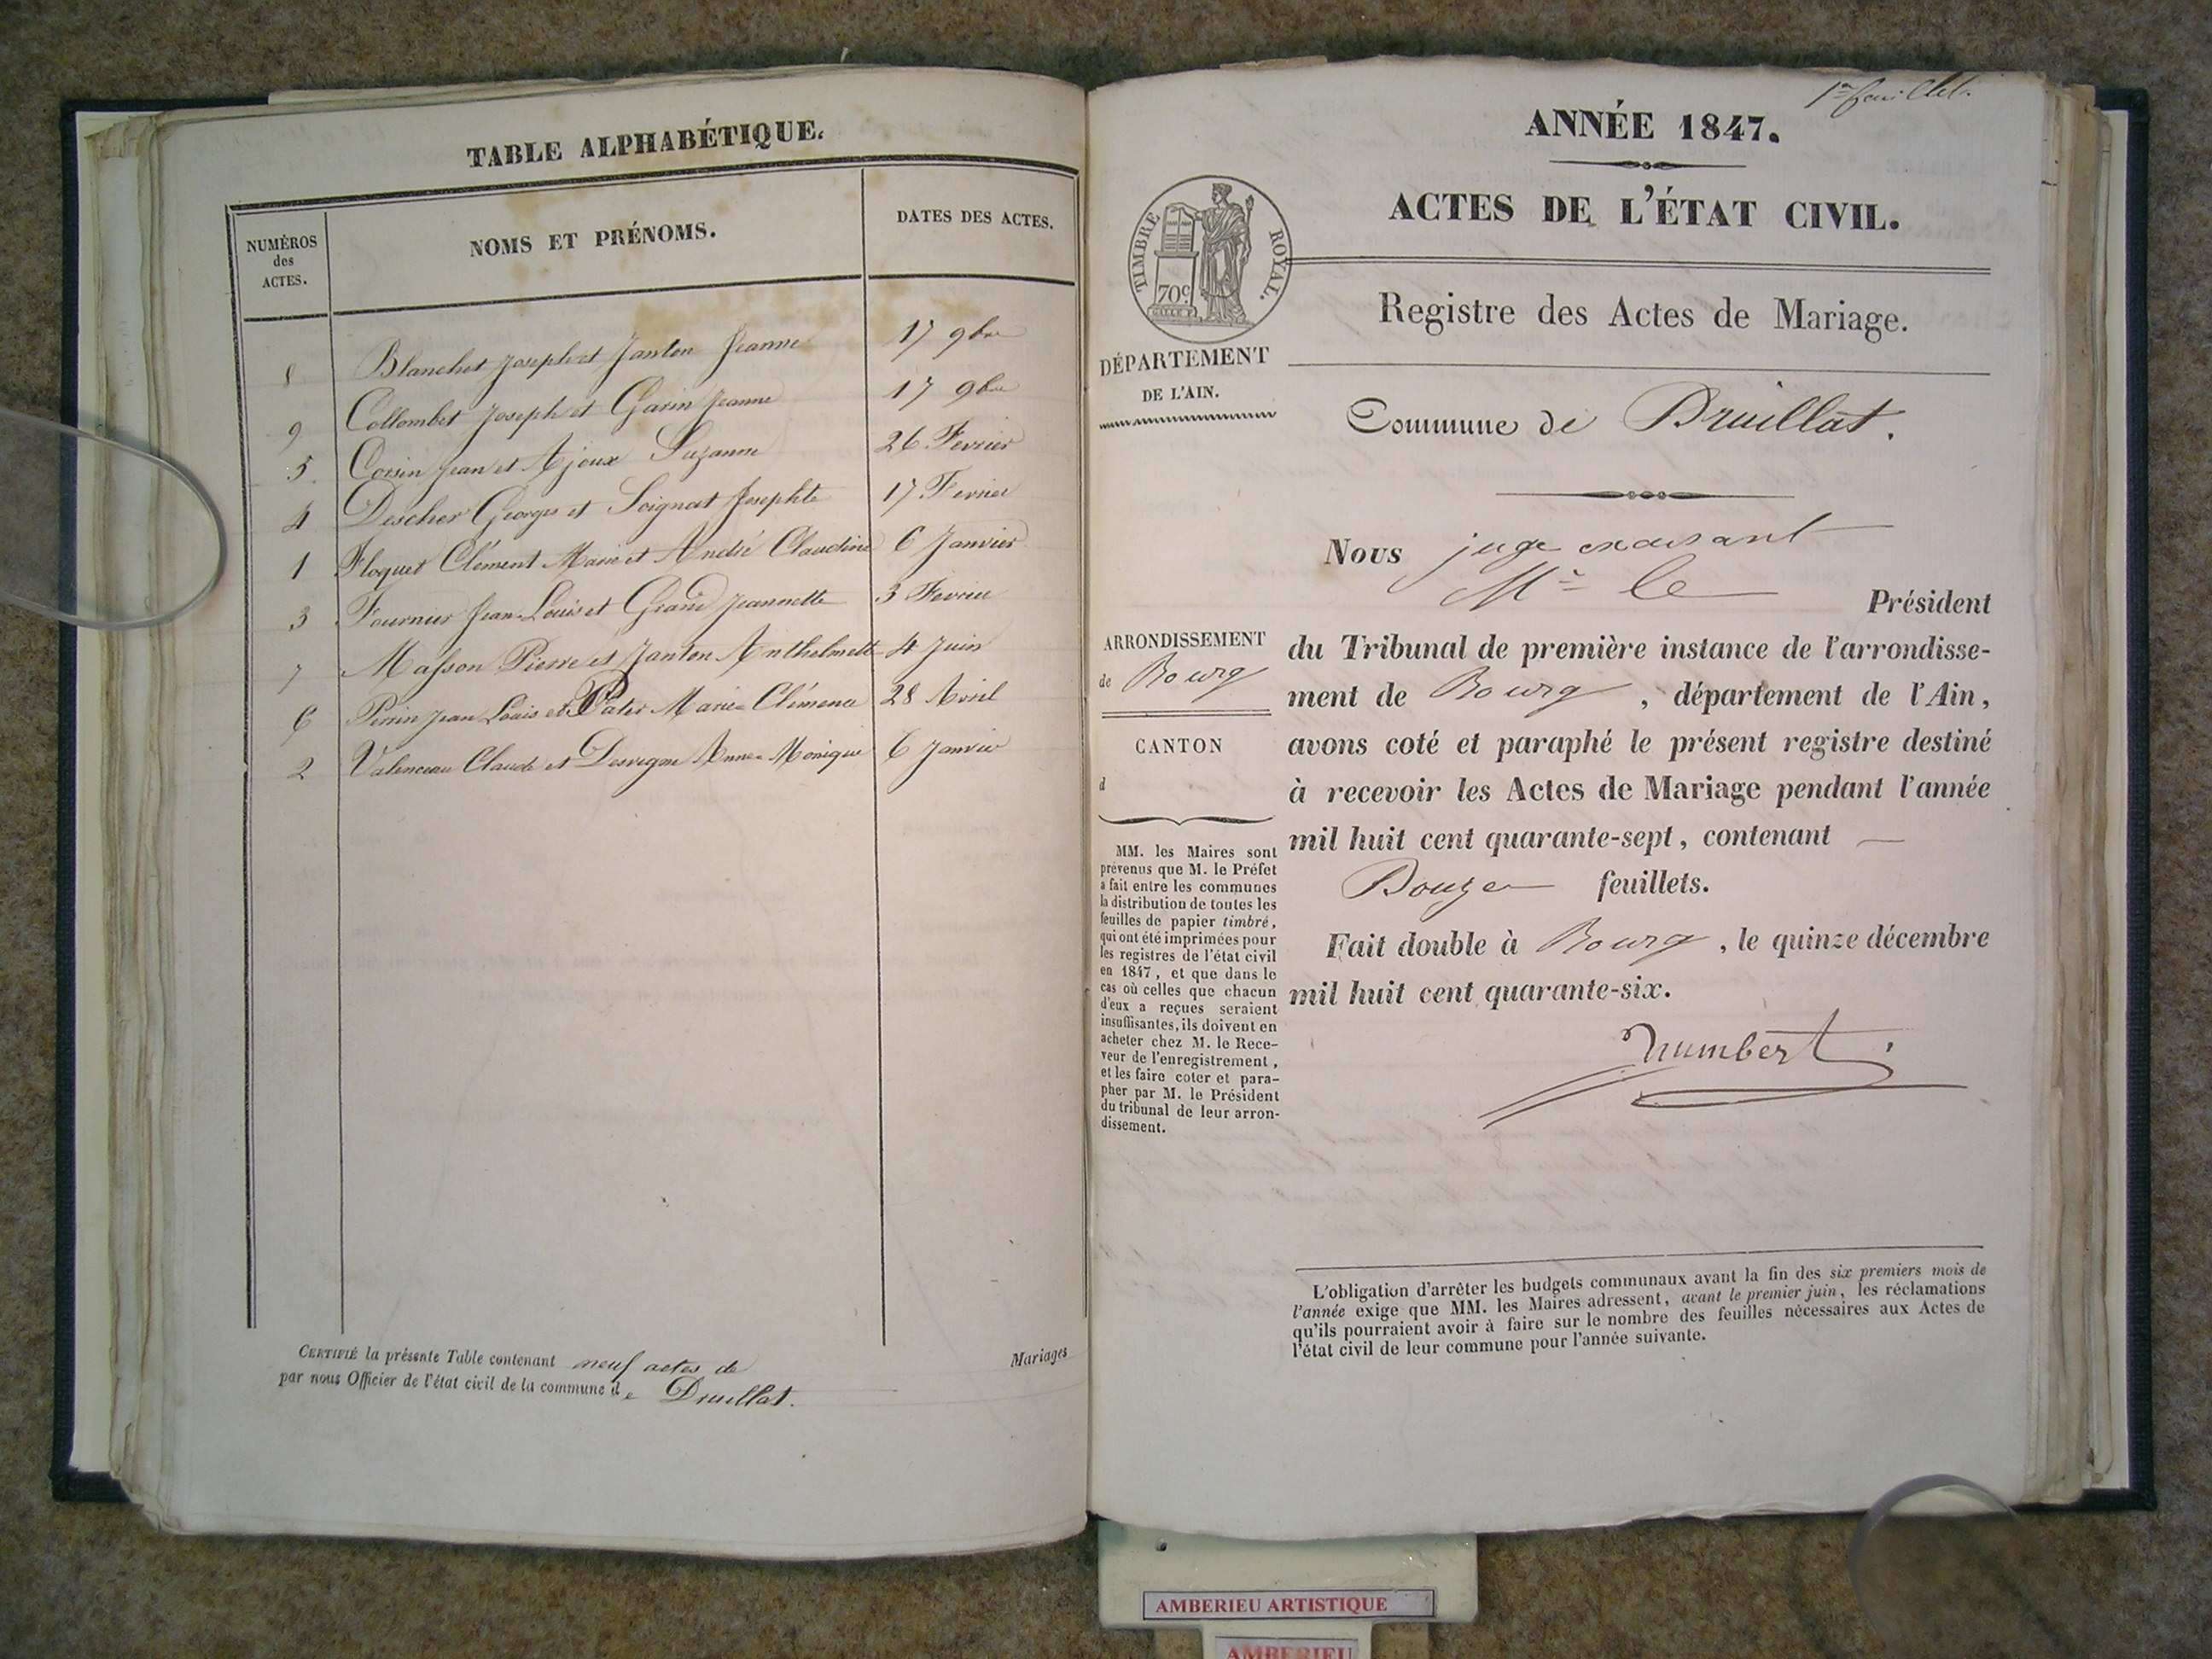 TABLE ALPHABÉTIQUE.
NUMÉROS
des
ACTES.
NOMS ET PRÉNOMS.
DATES DES ACTES.
8 Blanchet Joseph et Janton Jeanne 17 9bre
9 Collombet Joseph et Garin Jeanne 17 9bre
5 Corsin Jean et Ajoux Suzanne 26 Fevrier
4 Descher Georges et Soignat Josephte 17 Fevrier
1 Floquet Clément Marie et André Claudine 6 Janvier
3 Fournier Jean-Louis et Grand Jeannette 3 Fevrier
7 Masson Pierre et Janton Anthelmette 4 Juin
6 Perrin Jean Louis et Pater Marie-Clémence 28 Avril
2 Valenceau Claude et Desvigne Anne-Monique 6 Janvier
CERTIFIÉ la présente Table contenant neuf actes de Mariages
par nous Officier de l'état civil de la commune de Druillat.
1er feuillet.
ANNÉE 1847.
ACTES DE L'ÉTAT CIVIL.
TIMBRE ROYAL.
70c
Registre des Actes de Mariage.
DÉPARTEMENT
DE L'AIN.
Commune de Druillat.
Nous juge
Mr le Président
ARRONDISSEMENT
de Bourg
CANTON
d
du Tribunal de première instance de l'arrondisse-
ment de Bourg, département de l'Ain,
avons coté et paraphé le présent registre destiné
à recevoir les Actes de Mariage pendant l'année
mil huit cent quarante-sept, contenant
Douze feuillets.
Fait double à Bourg, le quinze décembre
mil huit cent quarante-six.
humbert
MM. les Maires sont
prévenus que M. le Préfet
a fait entre les communes
la distribution de toutes les
feuilles de papier timbré,
qui ont été imprimées pour
les registres de l'état civil
en 1847, et que dans le
cas où celles que chacun
d'eux a reçues seraient
insuffisantes, ils doivent en
acheter chez M. le Rece-
veur de l'enregistrement,
et les faire coter et para-
pher par M. le Président
du tribunal de leur arron-
dissement.
L'obligation d'arrêter les budgets communaux avant la fin des six premiers mois de
l'année exige que MM. les Maires adressent, avant le premier juin, les réclamations
qu'ils pourraient avoir à faire sur le nombre des feuilles nécessaires aux Actes de
l'état civil de leur commune pour l'année suivante.
AMBERIEU ARTISTIQUE
AMBERIEU